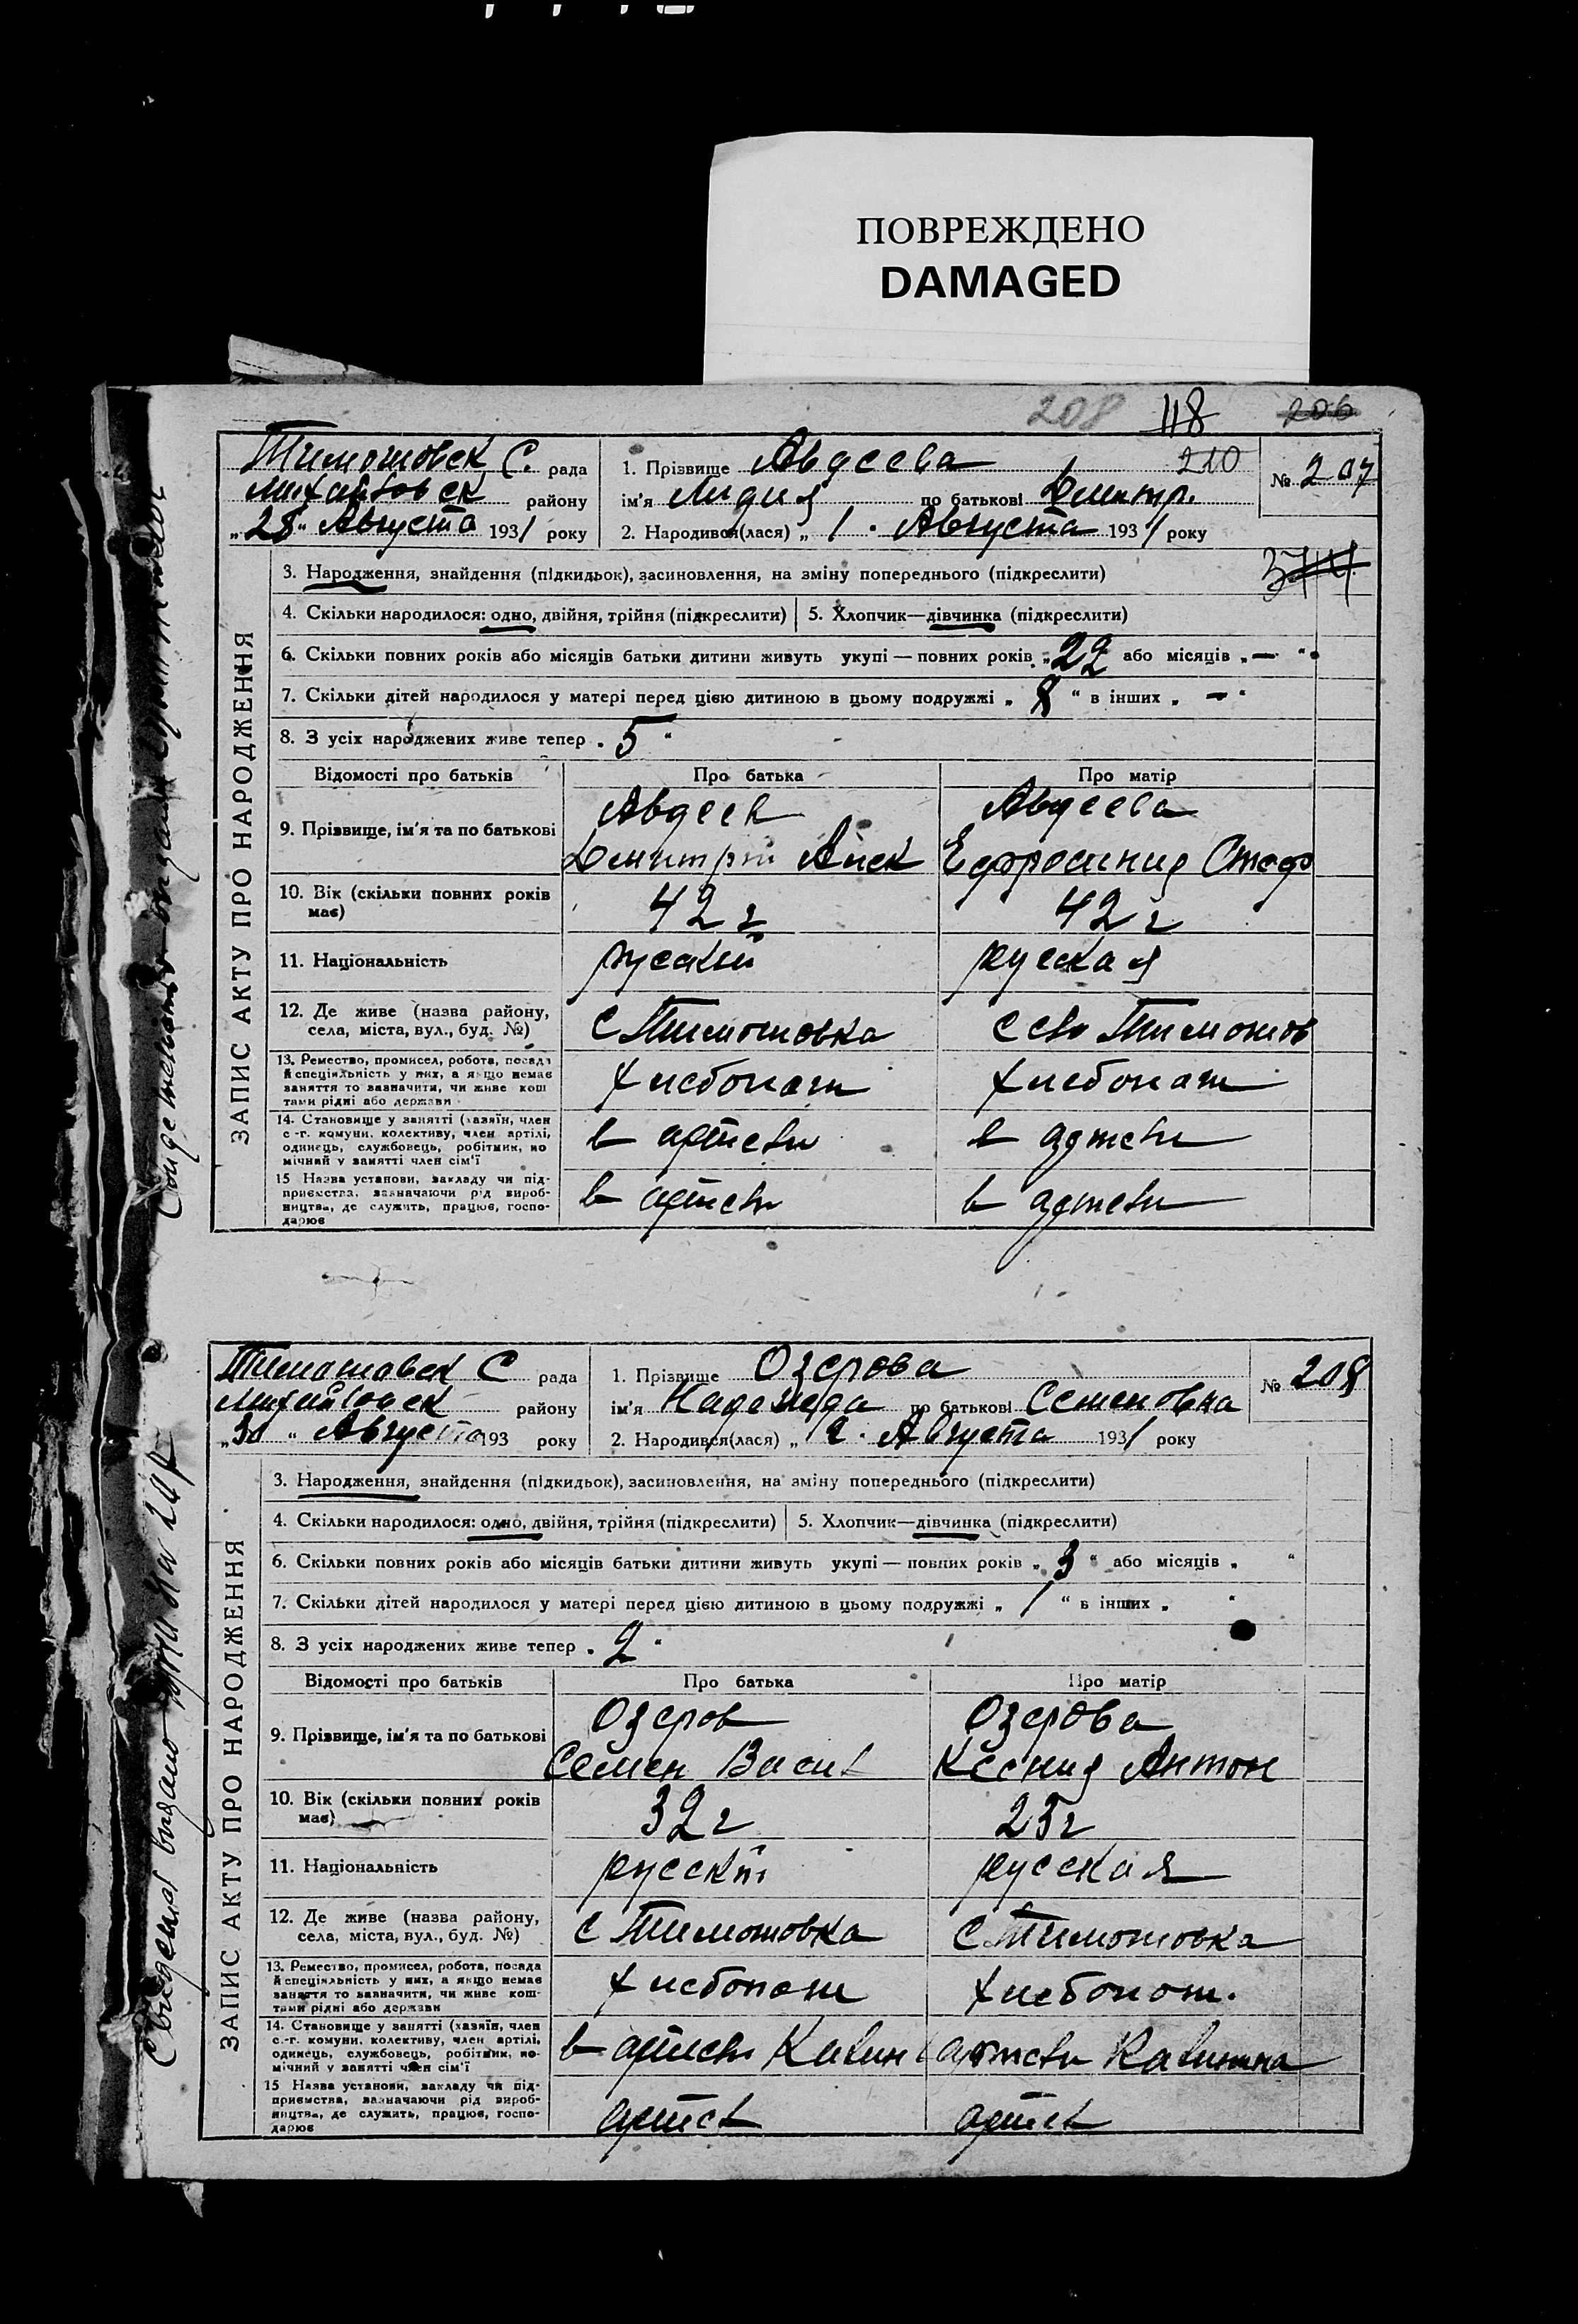 ПОВРЕЖДЕНО
DAMAGED
208 118 206
Тимошовск С. рада
Михайловск району
„28“ Августа 1931 року
1. Прізвище Авдеева 210
ім'я Лидия по батькові Дмитр.
2. Народився(лася) „1“ Августа 1931 року
№ 207
374
ЗАПИС АКТУ ПРО НАРОДЖЕННЯ
3. Народження, знайдення (підкидьок), засиновлення, на зміну попереднього (підкреслити)
4. Скільки народилося: одно, двійня, трійня (підкреслити) 5. Хлопчик—дівчинка (підкреслити)
6. Скільки повних років або місяців батьки дитини живуть укупі — повних років „22 або місяців „—“
7. Скільки дітей народилося у матері перед цією дитиною в цьому подружжі „8“ в інших „—“
8. З усіх народжених живе тепер „5“
Відомості про батьків Про батька Про матір
9. Прізвище, ім'я та по батькові
Авдеев
Дмитрий Алек
Авдеева
Ефросиния Стеф
10. Вік (скільки повних років
має)
42 г
42 г
11. Національність
русский
русская
12. Де живе (назва району,
села, міста, вул., буд. №)
С Тимошовка
С Тимошов
13. Ремество, промисел, робота, посада
й спеціяльність у них, а якщо немає
заняття то зазначити, чи живе кош
тами рідні або держави
Хлебопаш
Хлебопаш
14. Становище у занятті (хазяїн, член
с.-г. комуни, колективу, член артілі,
одинець, службовець, робітник, по
мічний у занятті член сім'ї
в артели
в артели
15 Назва установи, закладу чи під-
приємства, зазначаючи рід вироб-
ництва, де служить, працює, госпо-
дарює
в артели
в артели
Тимошовск С рада
Михайловск району
„30“ Августа 193 року
1. Прізвище Озерова
ім'я Надежда по батькові Семеновна
2. Народився(лася) „2“ Августа 1931 року
№ 208
Свидения видано
ЗАПИС АКТУ ПРО НАРОДЖЕННЯ
3. Народження, знайдення (підкидьок), засиновлення, на зміну попереднього (підкреслити)
4. Скільки народилося: одно, двійня, трійня (підкреслити) 5. Хлопчик—дівчинка (підкреслити)
6. Скільки повних років або місяців батьки дитини живуть укупі — повних років „3“ або місяців „ “
7. Скільки дітей народилося у матері перед цією дитиною в цьому подружжі „1“ в інших „ “
8. З усіх народжених живе тепер „2“
Відомості про батьків Про батька Про матір
9. Прізвище, ім'я та по батькові
Озеров
Семен Васил
Озерова
Ксения Антон
10. Вік (скільки повних років
має)
32 г
25 г
11. Національність
русский
русская
12. Де живе (назва району,
села, міста, вул., буд. №)
С Тимошовка
С Тимошовка
13. Ремество, промисел, робота, посада
й спеціяльність у них, а якщо немає
заняття то зазначити, чи живе кош-
тами рідні або держави
Хлебопаш
Хлебопаш.
14. Становище у занятті (хазяїн, член
с.-г. комуни, колективу, член артілі,
одинець, службовець, робітник, по-
мічний у занятті член сім'ї
в артели Калин
артели Калинина
15 Назва установи, закладу чи під-
приємства, зазначаючи рід вироб-
ництва, де служить, працює, госпо-
дарює
артел
артел